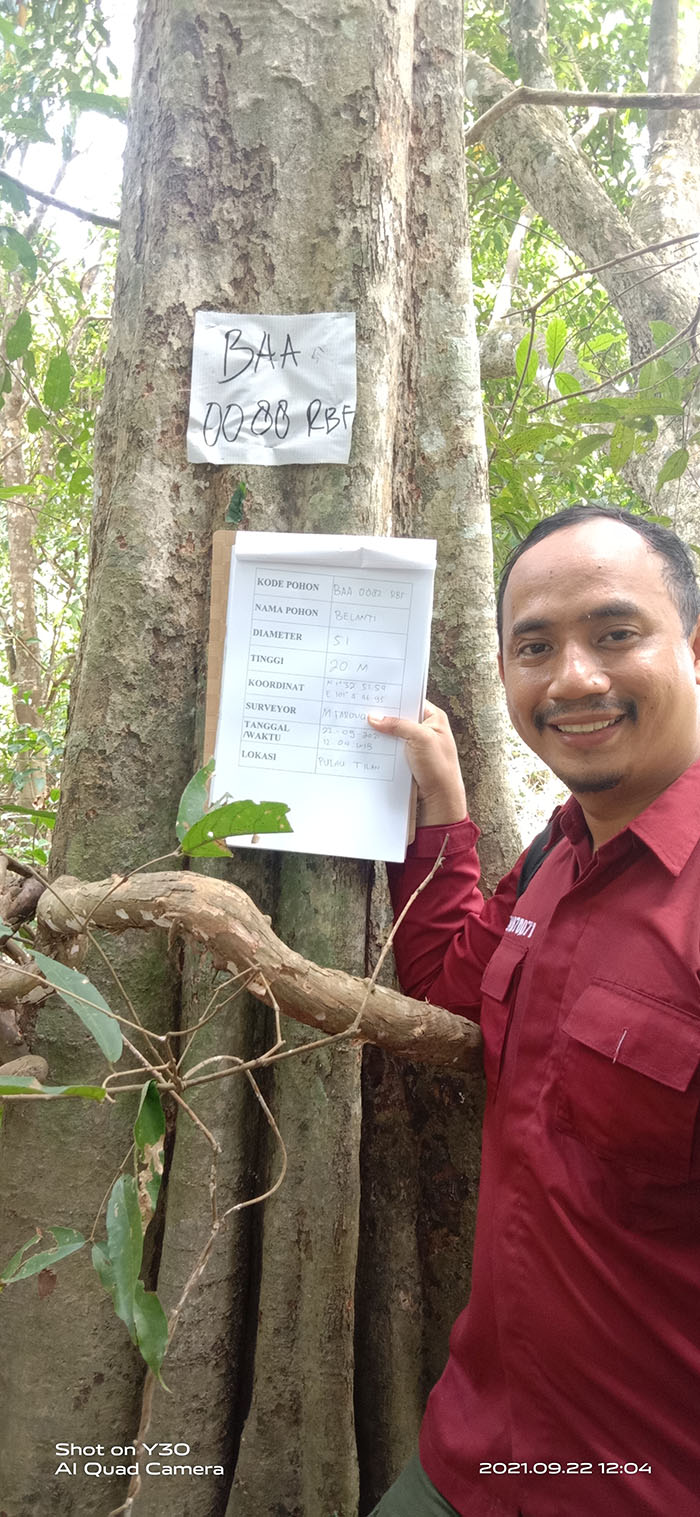 BAA
0088 RBF
KODE POHON BAA 0088 RBF
NAMA POHON BELANTI
DIAMETER 51
TINGGI 20 M
KOORDINAT N 1° 32' 51.59
E 101°
SURVEYOR
TANGGAL 22-09-202
/WAKTU 12 04 WIB
LOKASI PULAU TILAN
Shot on Y30
AI Quad Camera
2021.09.22 12:04